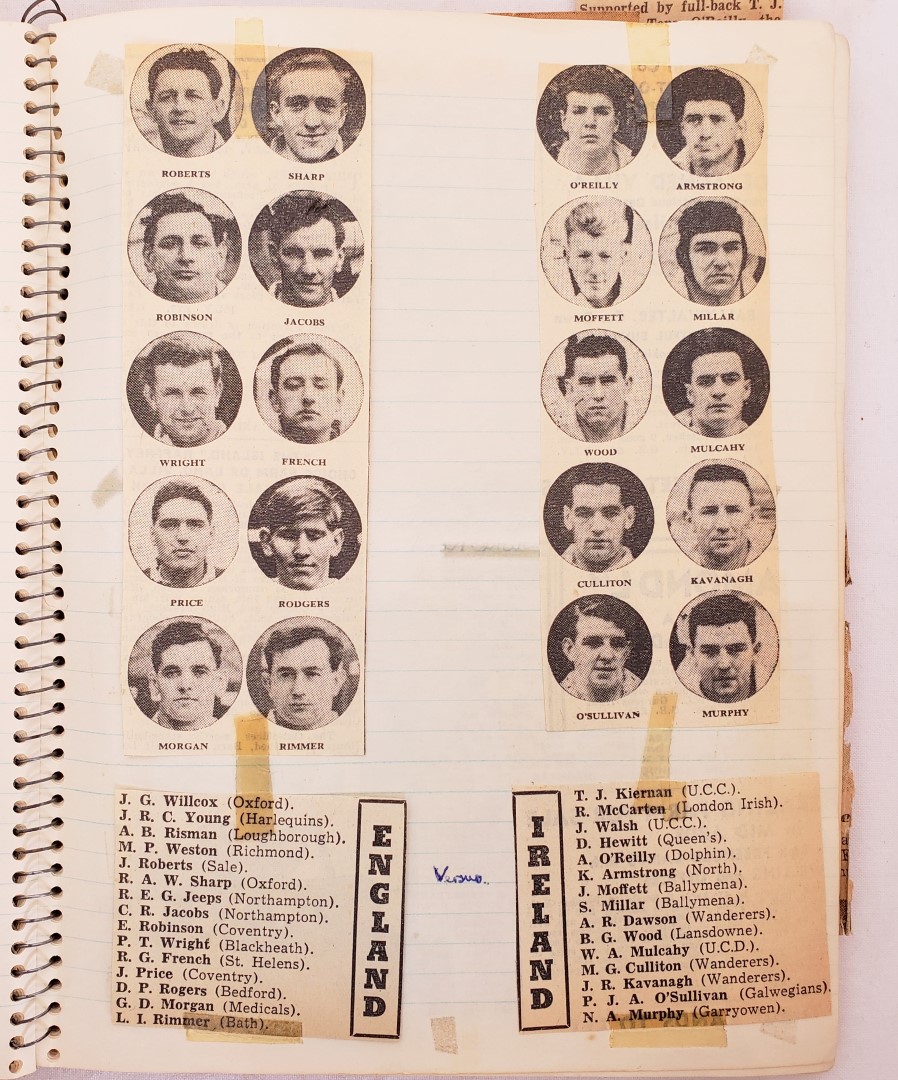 Supported by full-back T. J.
Tony O'Reilly, the
ROBERTS
SHARP
ROBINSON
JACOBS
WRIGHT
FRENCH
PRICE
RODGERS
MORGAN
RIMMER
O'REILLY
ARMSTRONG
MOFFETT
MILLAR
WOOD
MULCAHY
CULLITON
KAVANAGH
O'SULLIVAN
MURPHY
J. G. Willcox (Oxford).
J. R. C. Young (Harlequins).
A. B. Risman (Loughborough).
M. P. Weston (Richmond).
J. Roberts (Sale).
R. A. W. Sharp (Oxford).
R. E. G. Jeeps (Northampton).
C. R. Jacobs (Northampton).
E. Robinson (Coventry).
P. T. Wright (Blackheath).
R. G. French (St. Helens).
J. Price (Coventry).
D. P. Rogers (Bedford).
G. D. Morgan (Medicals).
L. I. Rimmer (Bath).
ENGLAND
Versus..
IRELAND
T. J. Kiernan (U.C.C.).
R. McCarten (London Irish).
J. Walsh (U.C.C.).
D. Hewitt (Queen's).
A. O'Reilly (Dolphin).
K. Armstrong (North).
J. Moffett (Ballymena).
S. Millar (Ballymena).
A. R. Dawson (Wanderers).
B. G. Wood (Lansdowne).
W. A. Mulcahy (U.C.D.).
M. G. Culliton (Wanderers).
J. R. Kavanagh (Wanderers).
P. J. A. O'Sullivan (Galwegians).
N. A. Murphy (Garryowen).